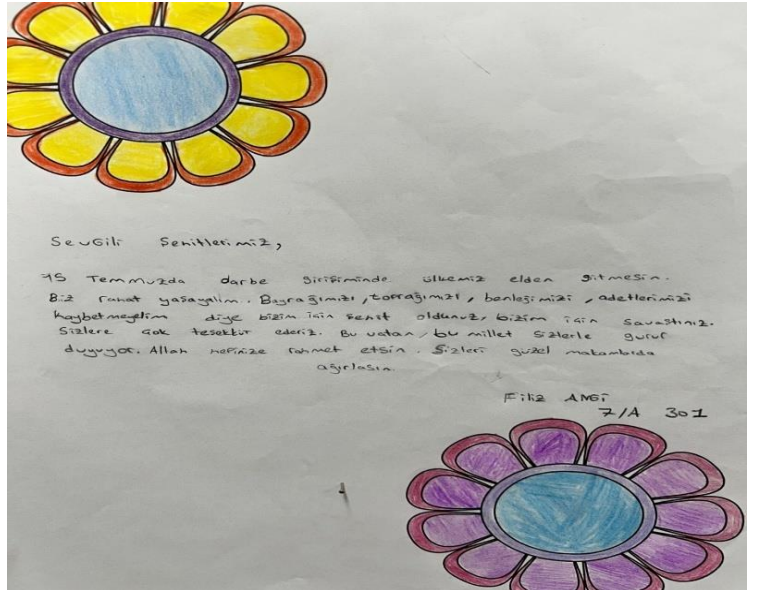 Sevgili Şehitlerimiz,
15 Temmuzda darbe girişiminde ülkemiz elden gitmesin.
Biz rahat yaşayalım. Bayrağımızı, toprağımızı, benleğimizi, adetlerimizi
kaybetmeyelim diye bizim için şehit oldunuz, bizim için savaştınız.
Sizlere çok teşekkür ederiz. Bu vatan, bu millet sizlerle gurur
duyuyor. Allah hepinize rahmet etsin. Sizleri güzel makamında
ağırlasın.
Filiz ANGİ
7/A 301